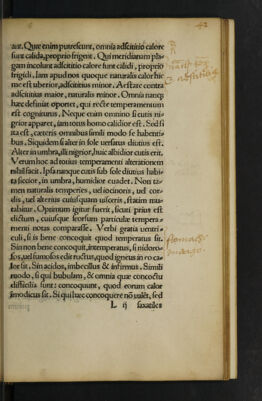 42
ant. Quæ enim putrescunt, omnia adscititio calore
sunt calida, proprio frigent. Qui meridianam pla
gam incolunt adscititio calore sunt calidi, proprio
frigidi. Iam apud nos quoque naturalis calor hie
me est uberior, adscititius minor. Aestate contra
adscititius maior, naturalis minor. Omnia nanque
hæc definiat oportet, qui recte temperamentum
est cogniturus. Neque enim omnino si cutis ni-
grior apparet, iam totus homo calidior est. Sed si
ita est, cæteris omnibus simili modo se habenti-
bus. Siquidem si alter in sole uersatus diutius est.
Alter in umbra, illi nigrior, huic albidior cutis erit.
Verum hoc ad totius temperamenti alterationem
nihil facit. Ipsa nanque cutis sub sole diutius habi-
ta siccior, in umbra, humidior euadet. Non ta-
men naturalis temperies, uel iocinoris, uel cor-
dis, uel alterius cuiusquam uisceris, statim mu-
tabitur. Optimum igitur fuerit, sicuti prius est
dictum, cuiusque seorsum particulæ tempera-
menti notas comparasse. Verbi gratia uentri-
culi, si is bene concoquit quod temperatus sit.
Sin non bene concoquit, intemperatus, si nidoro-
sos, uel fumosos edit ructus, quod igneus in eo ca-
lor sit. Sin acidos, imbecillus & infirmus. Simili
modo, si qui bubulam, & omnia quæ concoctu
difficilia sunt concoquunt, quod eorum calor
immodicus sit. Si qui hæc concoquere non ualent, sed
L ij saxatiles